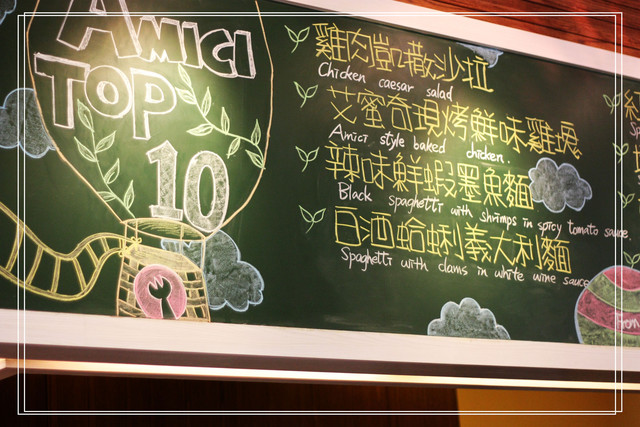 AMICI
TOP
10
雞肉凱撒沙拉
Chicken caesar salad
艾蜜奇現烤鮮味雞塊
Amici style baked chicken.
辣味鮮蝦墨魚麵
Black spaghetti with shrimps in spicy tomato sauce
白酒蛤蜊義大利麵
Spaghetti with clams in white wine sauce